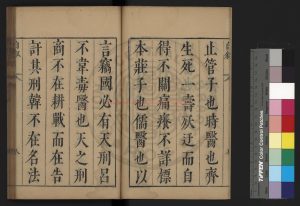 止管子也時醫也齊
生死一壽殀迂而自
得不關痛癢不詳標
本莊子也儒醫也以
言竊國必有天刑呂
不韋毒醫也天之刑
商不在耕戰而在告
訐其刑韓不在名法